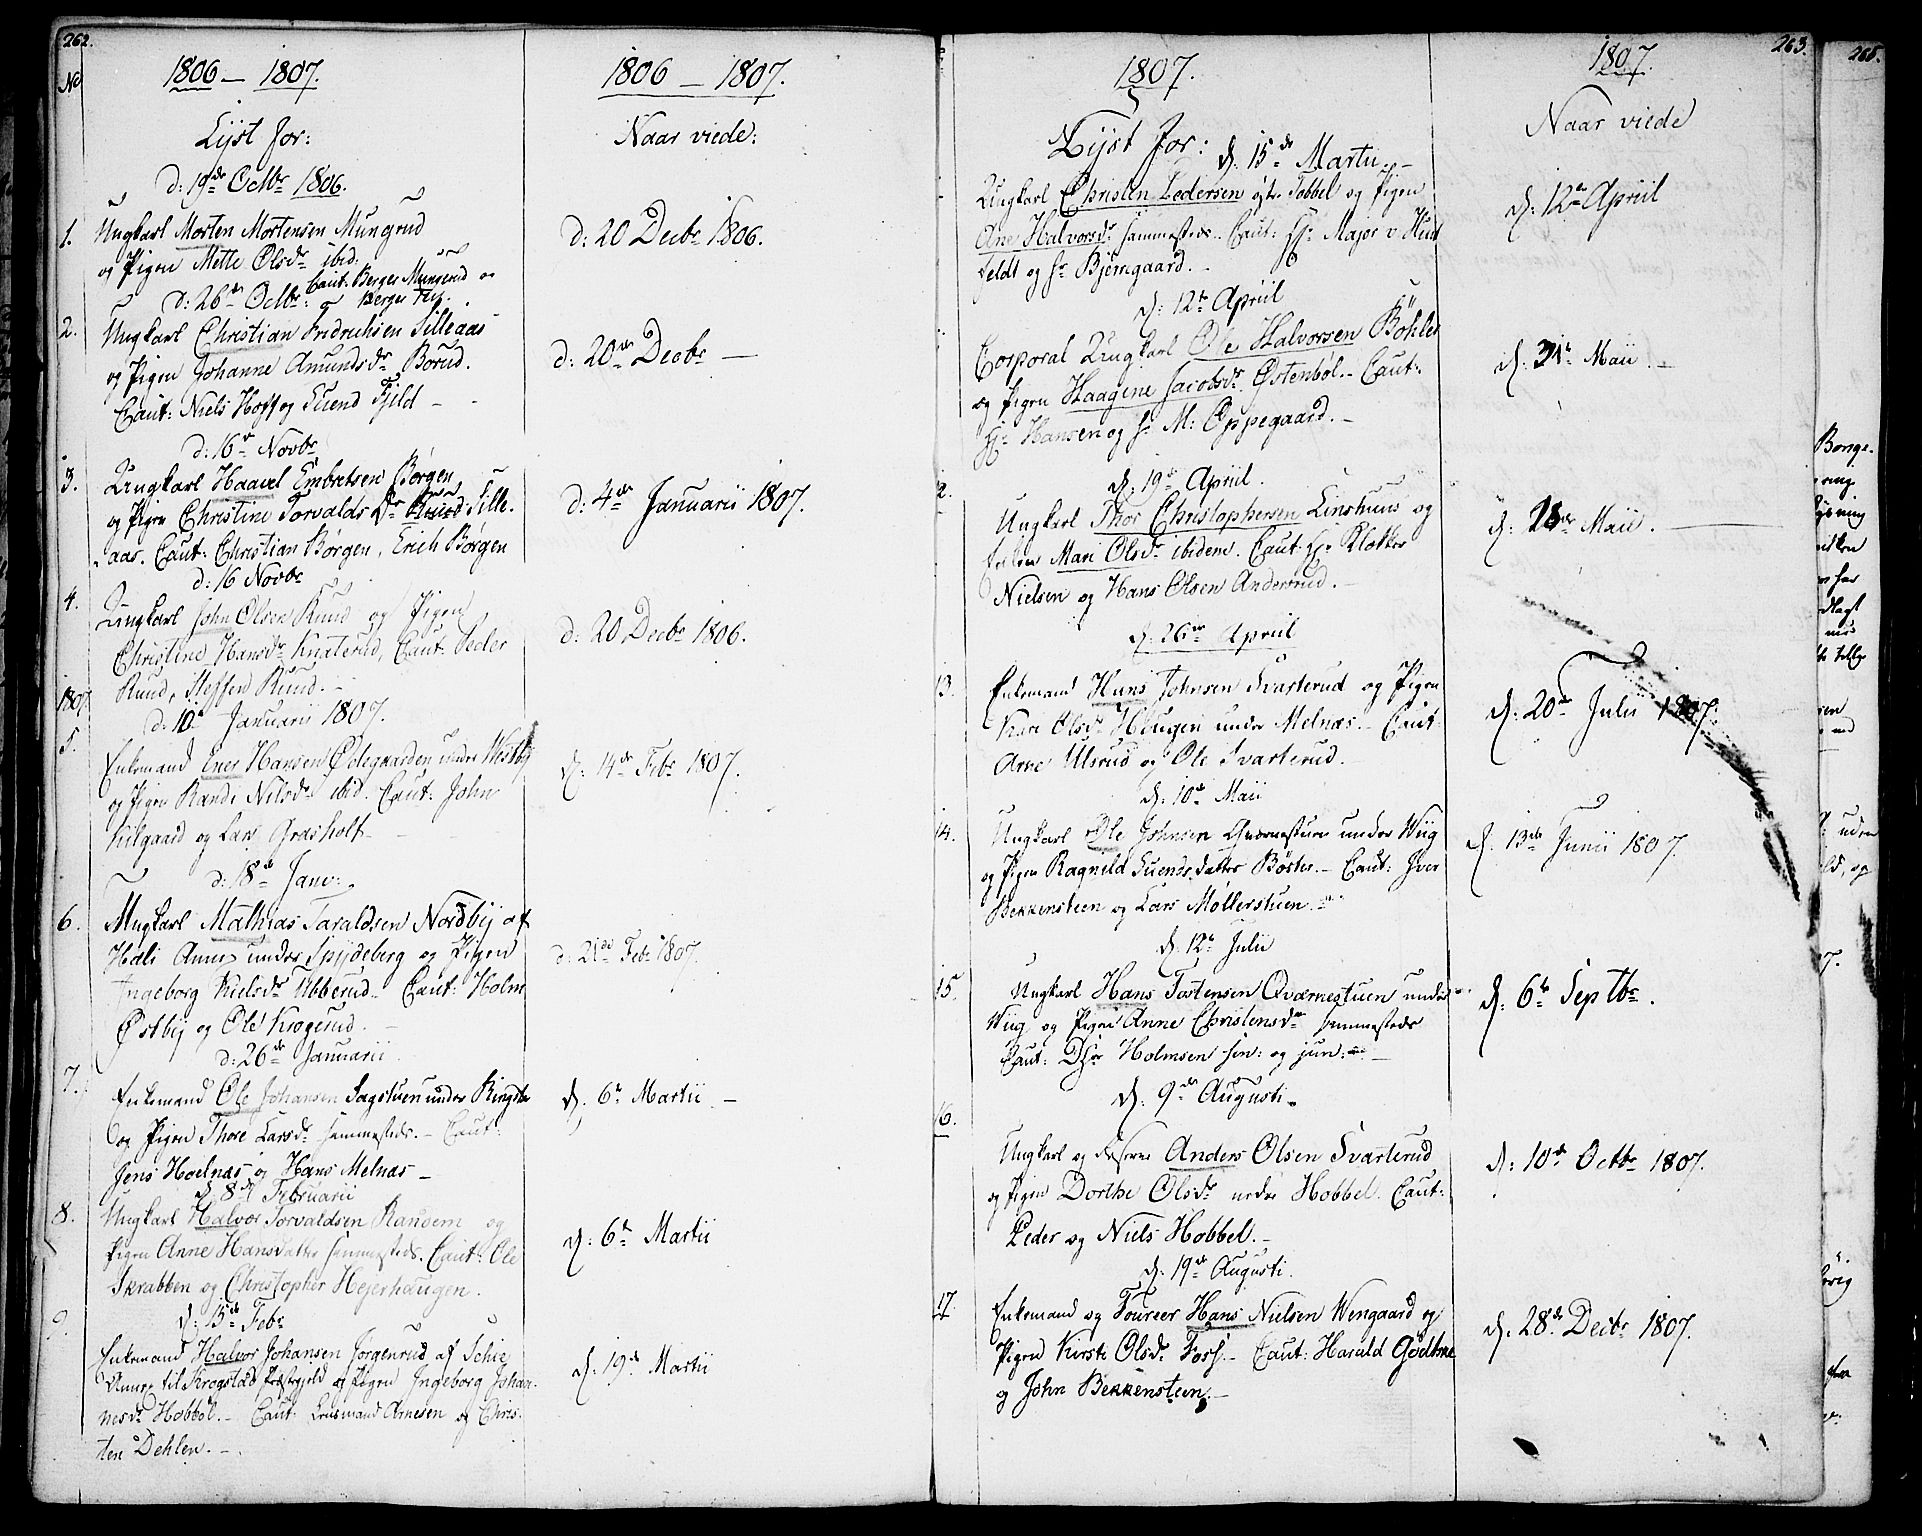 262.
No
1806 – 1807.
Lyst for:
d: 19de Octbr 1806.
1.
Ungkarl Morten Mortensen Mungrud
og Pigen Mette Olsdr ibid.
Caut: Berger Mungrud og
Berger
d: 26de Octbr:
2.
Ungkarl Christian Fridrichsen Silleaas
og Pigen Johanne Amundsdr Borud.
Caut: Niels Hoff og Suend Fjeld –
d: 16de Novbr
3.
Ungkarl Haavel Embretsen Børgen
og Pigen Christine Torvalds Dr Sille-
aas. Caut: Christian Børgen, Erich Børgen
d: 16 Novbr
4.
Ungkarl John Olsen Ruud og Pigen
Christine Hansdr Knaterud, Caut: Peder
Ruud, Steffen Ruud. –
1807.
d: 10de Januarii 1807.
5.
Enkemand Ener Hansen Ødegaarden under Westby
og Pigen Randi Nilsdr ibid. Caut: John
Kilgaard og Lars Grasholt –
d: 18de Janv:
6.
Ungkarl Mathias Taraldsen Nordbij af
Hæli Annex under Spydeberg og Pigen
Ingeborg Nielsdr Ubberud – Caut: Holm
Østbij og Ole Krogerud. –
d: 26de Januarii
7.
Enkemand Ole Johansen Sagstuen under Ringstv
og Pigen Thore Larsdr sammesteds. – Caut:
Jens Hoelnæs og Hans Melnæs –
d: 8de Februarii
8.
Ungkarl Halvor Torvaldsen Ransem og
Pigen Anne Hansdatter sammesteds. Caut: Ole
Skrabben og Christopher Hejerhaugen.
d: 15de Febr
9.
Enkemand Halvor Johansen Jørgenrud af Schie
Annex til Krogstad Præstegield og Pigen Ingeborg Johan-
nesdr Hobbøl. – Caut: Lensmand Arnesen og Chris-
ten Dehlen. –
1806 – 1807.
Naar viede:
d: 20 Decbr 1806.
d: 20de Decbr –
d: 4de Januarii 1807.
d: 20 Decbr 1806.
d: 14de Febr 1807.
d: 21de Febr 1807.
d: 6te Martii –
d: 6te Martii
d: 19de Martii
263.
1807.
Lyst for:
d. 15de Martii –
Ungkarl Christen Pedersen østre Tobbel og Pigen
Ane Halvorsdr sammesteds. Caut: Hr Major v. Huit
feldt og Sr Bjerngaard. –
d. 12te Apriil
Corporal Ungkarl Ole Halvorsen Böhler
og Pigen Haagine Jacobsdr Østenbøl. – Caut:
Hr Hansen og Sr M: Oppegaard. –
2.
d. 19de Apriil.
Ungkarl Thor Christophersen Linshuus og
Pigen Mari Olsdr ibidem. Caut: Hr Klokker
Nielsen og Hans Olsen Anderrud. –
d: 26de Apriil
13.
Enkemand Hans Johnsen Svarterud og Pigen
Kari Olsdr Haugen under Melnæs. – Caut:
Arne Ulsrud og Ole Svarterud.
d. 10de Maii
14.
Ungkarl Ole Johnsen Qværnestuen under Wiig
og Pigen Ragnild Suendsdatter Böster. – Caut: Iver
Bekkensteen og Lars Møllerstuen. –
d. 12te Julii
15.
Ungkarl Hans Tostensen Qværnestuen under
Wiig og Pigen Anne Christensdr sammesteds
Caut: DHrr Holmsen sen: og jun: –
d. 9de Augusti
16.
Ungkarl og Anders Olsen Svarterud
og Pigen Dorthe Olsdr nedre Hobbel. Caut:
Peder og Niels Hobbel. –
d. 19de Augusti.
17.
Enkemand og Foureer Hans Nielsen Wengaard og
Pigen Kirsti Olsdr Foss. – Caut: Harald Godtme
og John Bekkensteen. –
1807.
Naar viede
d: 12te Apriil
d. 31te Maii –
d: Maii.
d: 20de Julii 1807.
d. 13de Junii 1807.
d: 6te Septbr.
d: 10de Octbr 1807.
d. 28de Decbr 1807.
265.